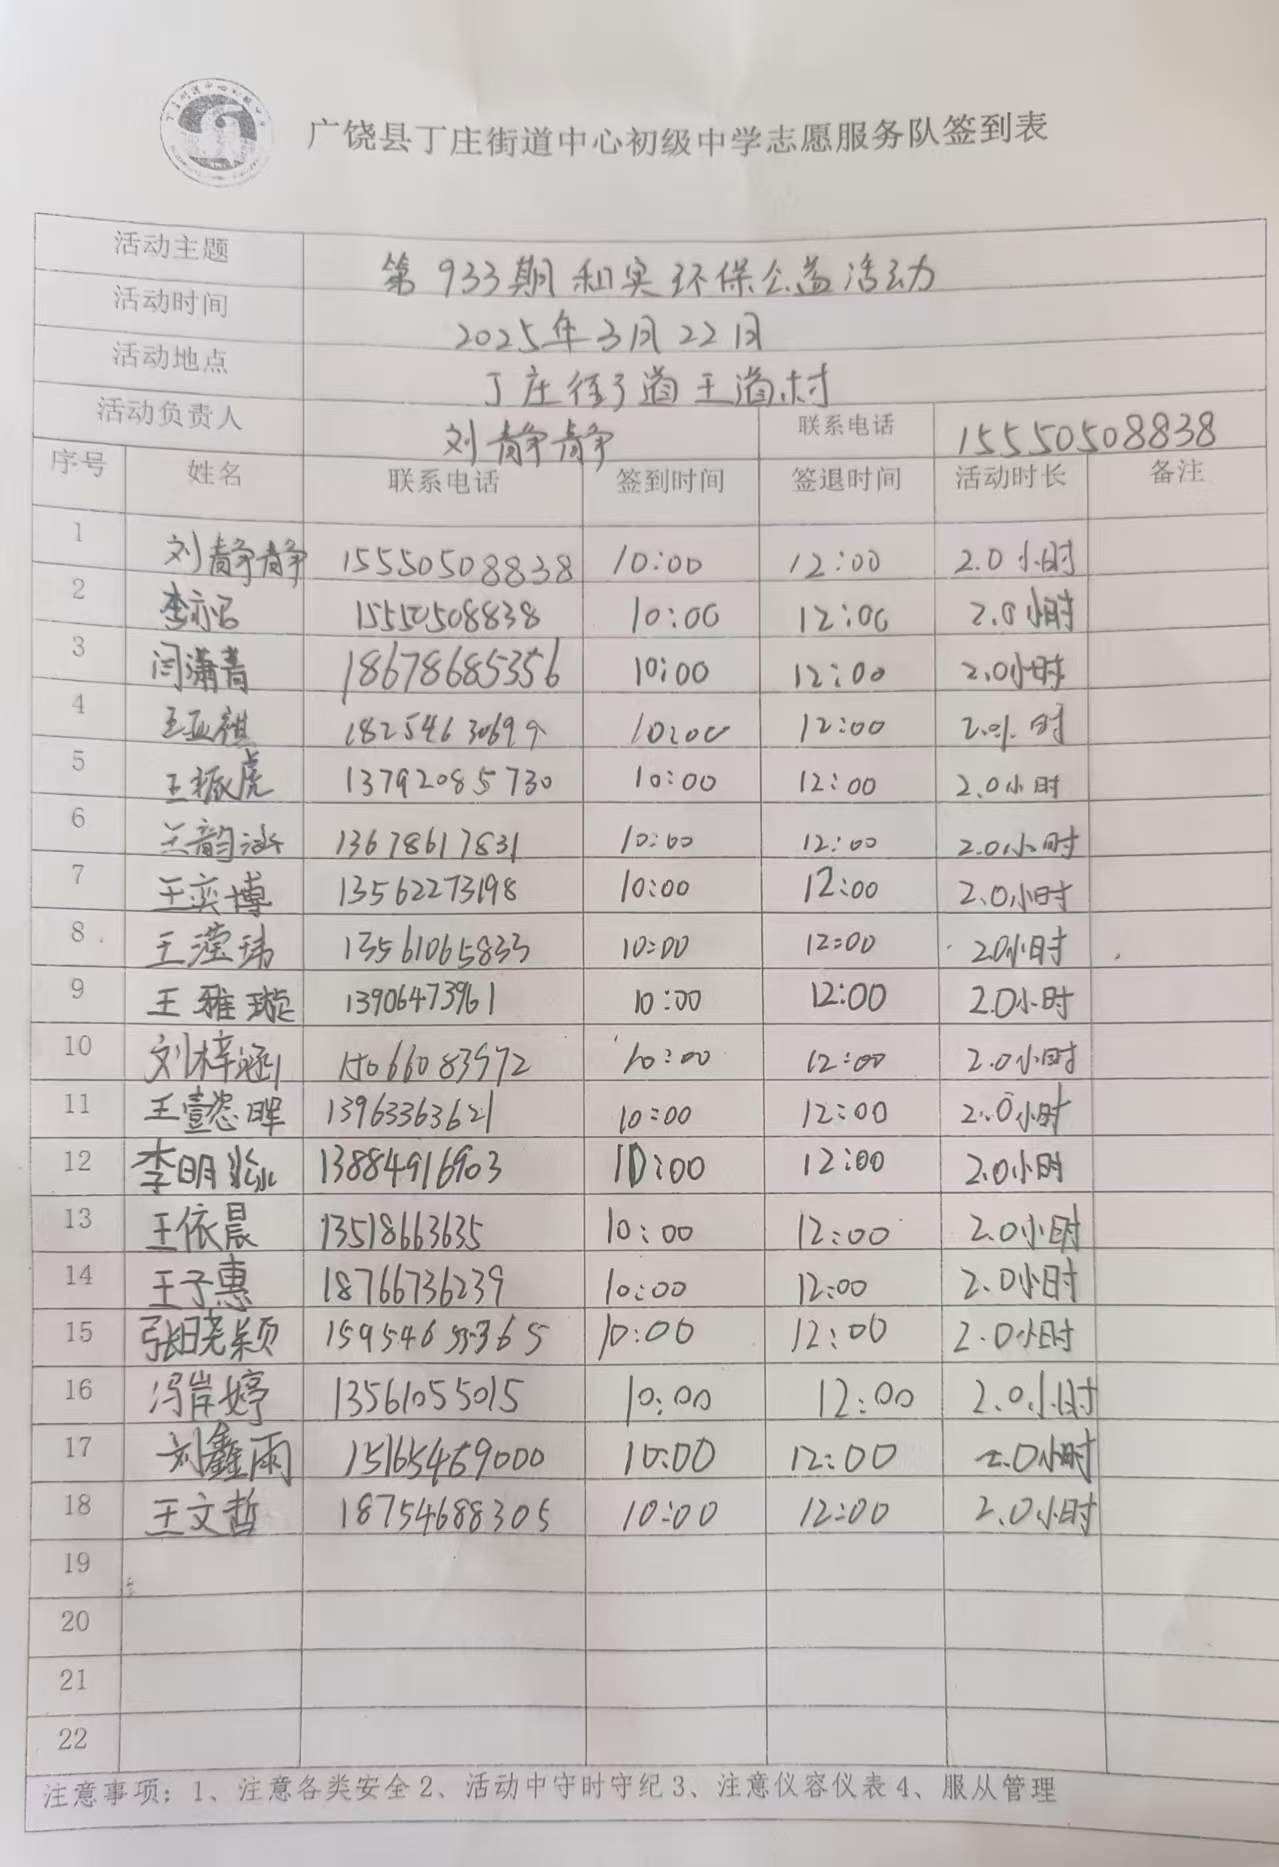 广饶县丁庄街道中心初级中学志愿服务队签到表
活动主题 第933期和实环保公益活动
活动时间 2025年3月22日
活动地点 丁庄街道王道村
活动负责人 刘静静 联系电话 15550508838
序号 姓名 联系电话 签到时间 签退时间 活动时长 备注
1 刘静静 15550508838 10:00 12:00 2.0小时
2 15550508838 10:00 12:00 2.0小时
3 闫潇菁 18678685356 10:00 12:00 2.0小时
4 王亚祺 10:00 12:00 2.0小时
5 王振虎 13792085730 10:00 12:00 2.0小时
6 13678617831 10:00 12:00 2.0小时
7 王奕博 13562273198 10:00 12:00 2.0小时
8 王滢玮 13561065833 10:00 12:00 2.0小时
9 王雅璇 13906473961 10:00 12:00 2.0小时
10 刘梓涵 15066083972 10:00 12:00 2.0小时
11 13963363621 10:00 12:00 2.0小时
12 13884916903 10:00 12:00 2.0小时
13 王依晨 13518663635 10:00 12:00 2.0小时
14 王子惠 18766736239 10:00 12:00 2.0小时
15 张晓颖 10:00 12:00 2.0小时
16 冯岸婷 13561055015 10:00 12:00 2.0小时
17 刘鑫雨 15165469000 10:00 12:00 2.0小时
18 王文哲 18754688305 10:00 12:00 2.0小时
19
20
21
22
注意事项：1、注意各类安全2、活动中守时守纪3、注意仪容仪表4、服从管理